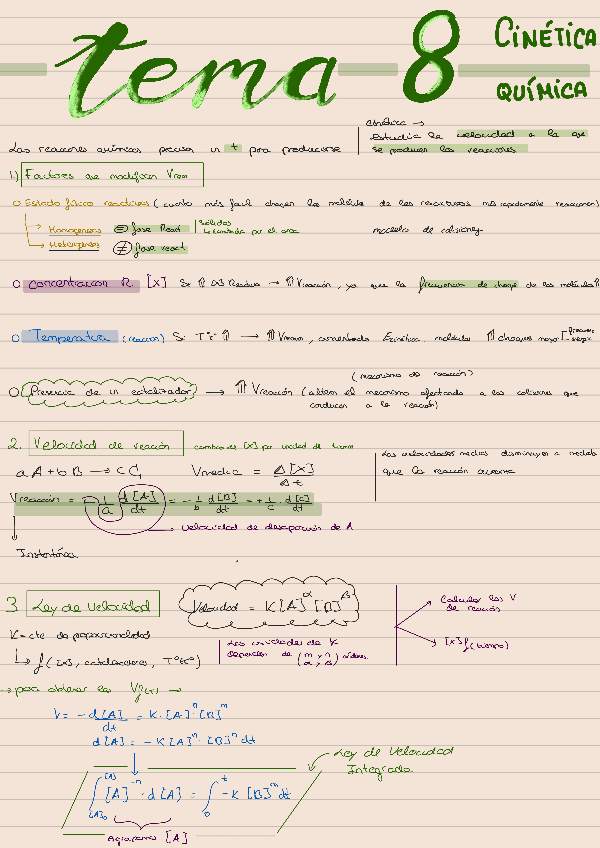 tema 8 CINÉTICA QUÍMICA
cinética →
Estudia la velocidad a la que
se producen las reacciones
Las reacciones químicas precisan un t para producirse
1.) Factores que modifican Vrxon
○ Estado físico reactivos (cuanto más fácil choquen las moléculas de los reactivos más rápidamente reaccionan)
→ Homogéneas = fase React
→ Heterogéneas ≠ fase react.
sólidos
modelo de colisiones
○ Concentración R. [X] Si ⇑ [X] Reactivo → ⇑ Vreacción, ya que la frecuencia de choque de las moléculas ⇑
○ Temperatura (reacción) Si T ⇑ → ⇑ Vreacción, aumentando Ecinética moléculas ⇑ choques
(mecanismo de reacción)
○ Presencia de un catalizador → ⇑ Vreacción (alteran el mecanismo afectando a las colisiones que
conducen a la reacción)
2. Velocidad de reacción cambia es [X] por unidad de tiempo
Las velocidades medias disminuyen a medida
que la reacción avanza
aA + bB → cC Vmedia = Δ[X] / Δt
Vreacción = - 1/a d[A]/dt = - 1/b d[B]/dt = + 1/c d[C]/dt
→ Velocidad de desaparición de A
Instantánea
3 Ley de Velocidad Velocidad = K[A]^α [B]^β
Calcular las V
de reacción
[X] f(tiempo)
K = cte de proporcionalidad
f([X], catalizadores, T)
Las unidades de K
dependen de (m, n / α, β) órdenes
→ para obtener las Vf(x) →
V = - d[A]/dt = K·[A]^n·[B]^m
d[A] = - K[A]^n·[B]^m dt
Ley de Velocidad
Integrada
∫ [A]₀ [A] [A]^-n · d[A] = ∫ 0 t -K [B]^m dt
Agrupamos [A]